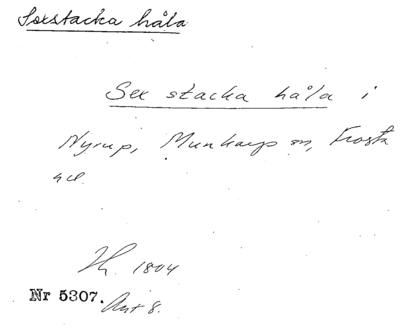 Sexstacka håla
Sex stacka håla i
Nyrup, Munkarp sn, Frosta
hd.
1804
Nr 5307. Akt 8.